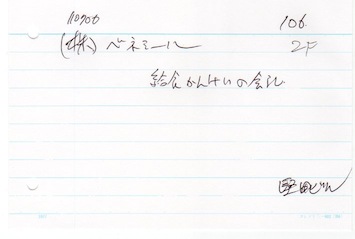 10700 106
(株) ベネミール 2F
給食かんけいの会社
堅田ビル